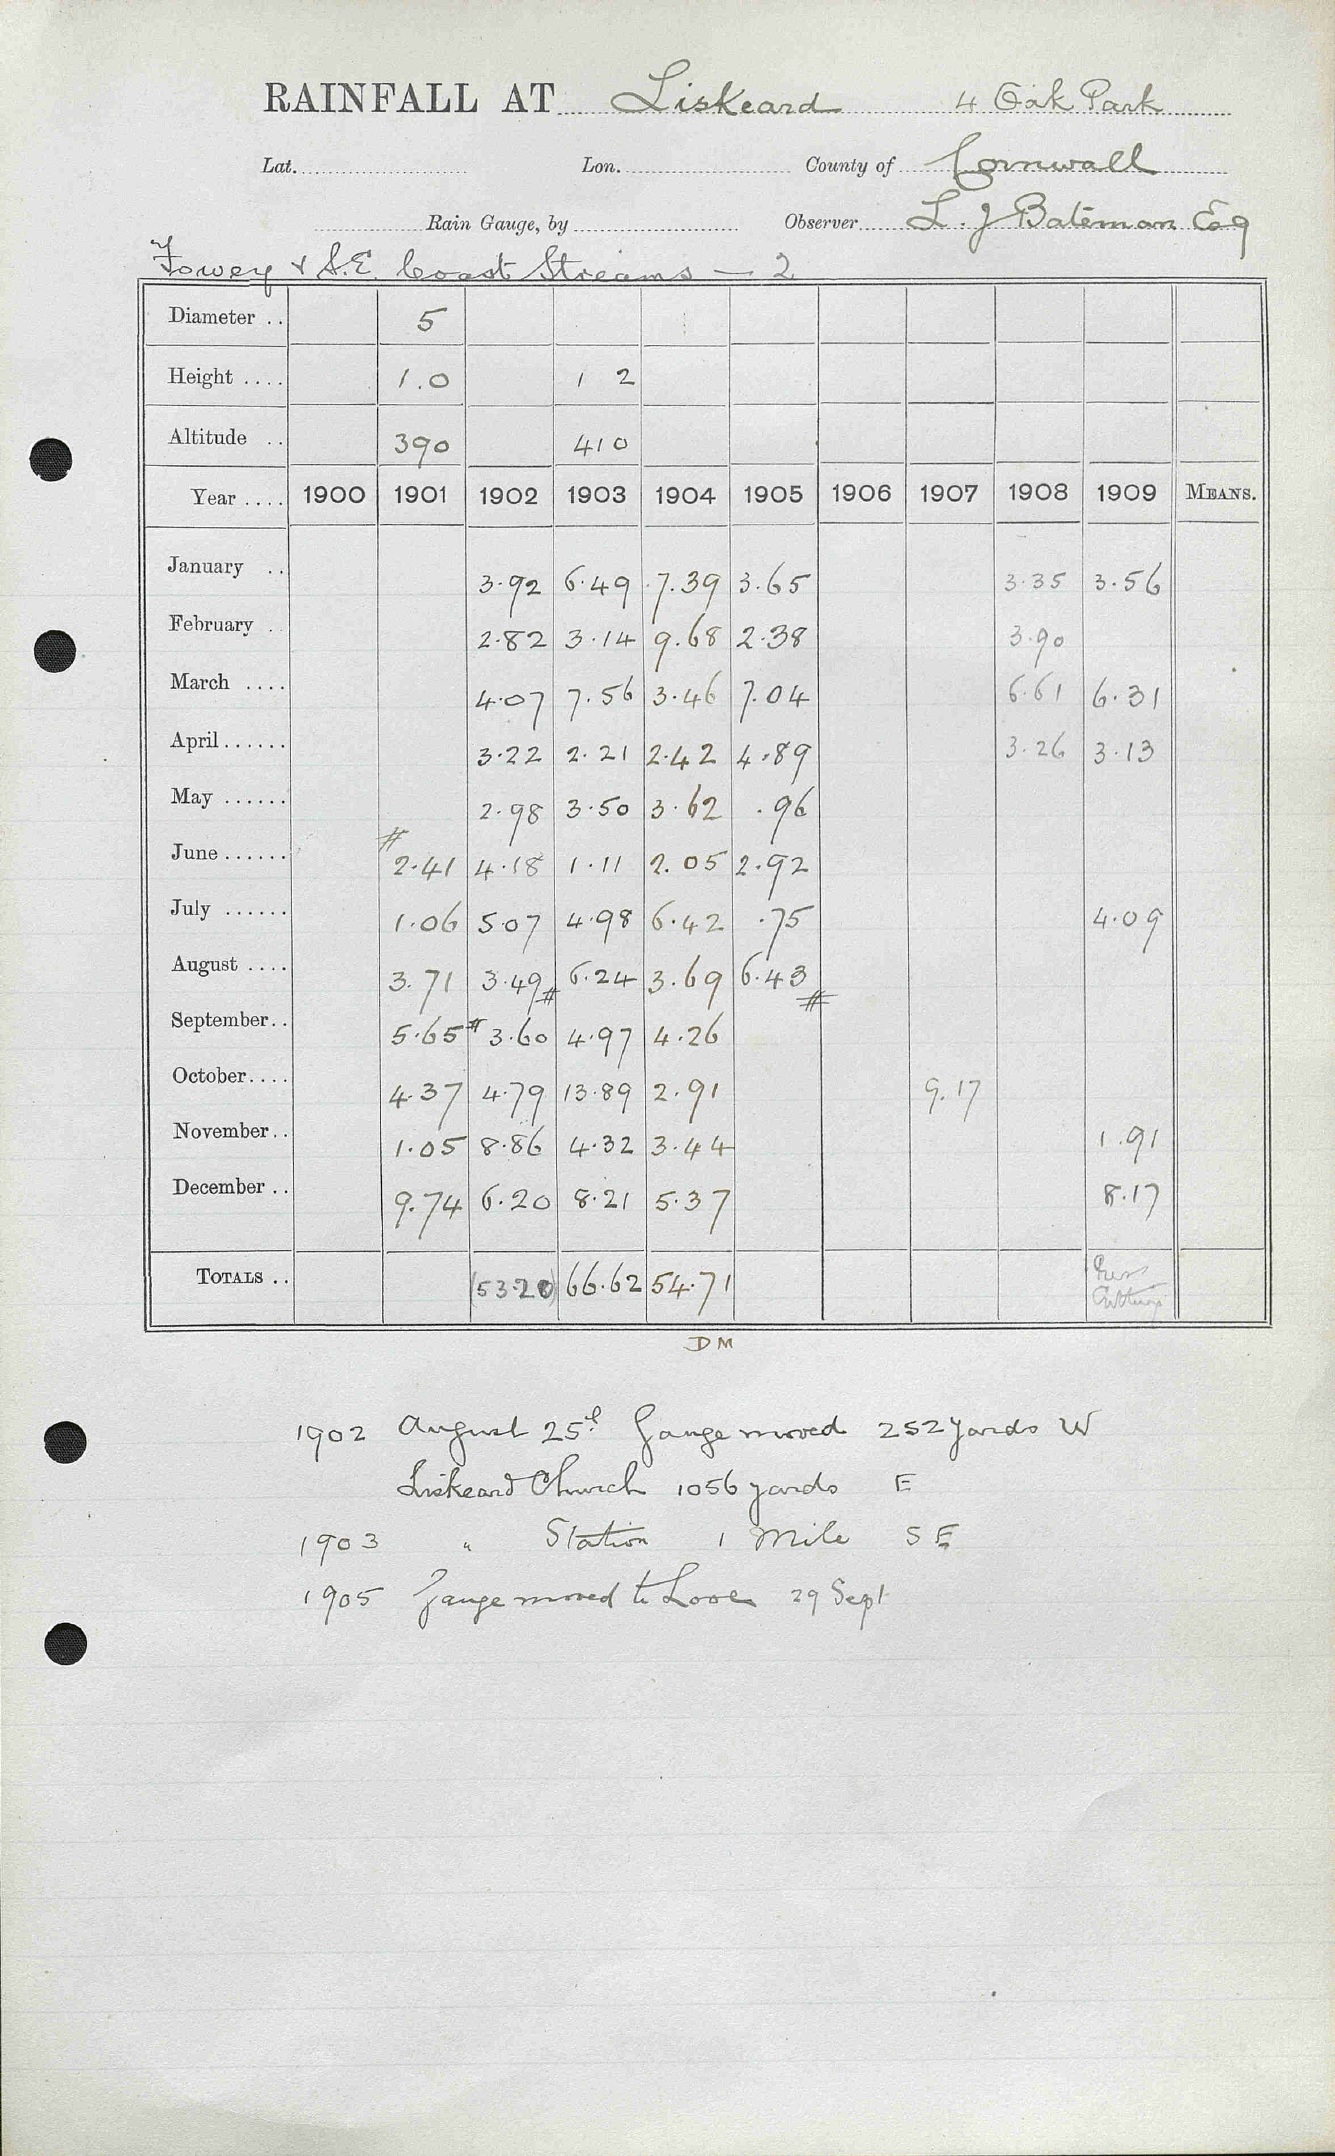 RAINFALL AT Liskeard 4 Oak Park
Lat. Lon. County of Cornwall
Rain Gauge, by Observer L. J Bateman Esq
Fowey & S.E. Coast Streams — 2
Diameter .. 5
Height .... 1.0 1 2
Altitude .. 390 410
Year .... 1900 1901 1902 1903 1904 1905 1906 1907 1908 1909 MEANS.
January .. 3.92 6.49 7.39 3.65 3.35 3.56
February .. 2.82 3.14 9.68 2.38 3.90
March .... 4.07 7.56 3.46 7.04 6.61 6.31
April...... 3.22 2.21 2.42 4.89 3.26 3.13
May ...... 2.98 3.50 3.62 .96
June...... # 2.41 4.18 1.11 2.05 2.92
July ...... 1.06 5.07 4.98 6.42 .75 4.09
August .... 3.71 3.49 # 6.24 3.69 6.43 #
September.. 5.65 # 3.60 4.97 4.26
October.... 4.37 4.79 13.89 2.91 9.17
November.. 1.05 8.86 4.32 3.44 1.91
December .. 9.74 6.20 8.21 5.37 8.17
TOTALS .. (53.20) 66.62 54.71
DM
1902 August 25th Gauge moved 252 yards W
Liskeard Church 1056 yards E
1903 " Station 1 Mile SE
1905 Gauge moved to Looe 29 Sept